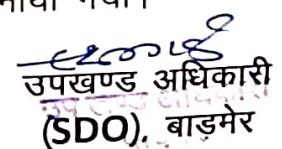 उपखण्ड अधिकारी
(SDO), बाड़मेर